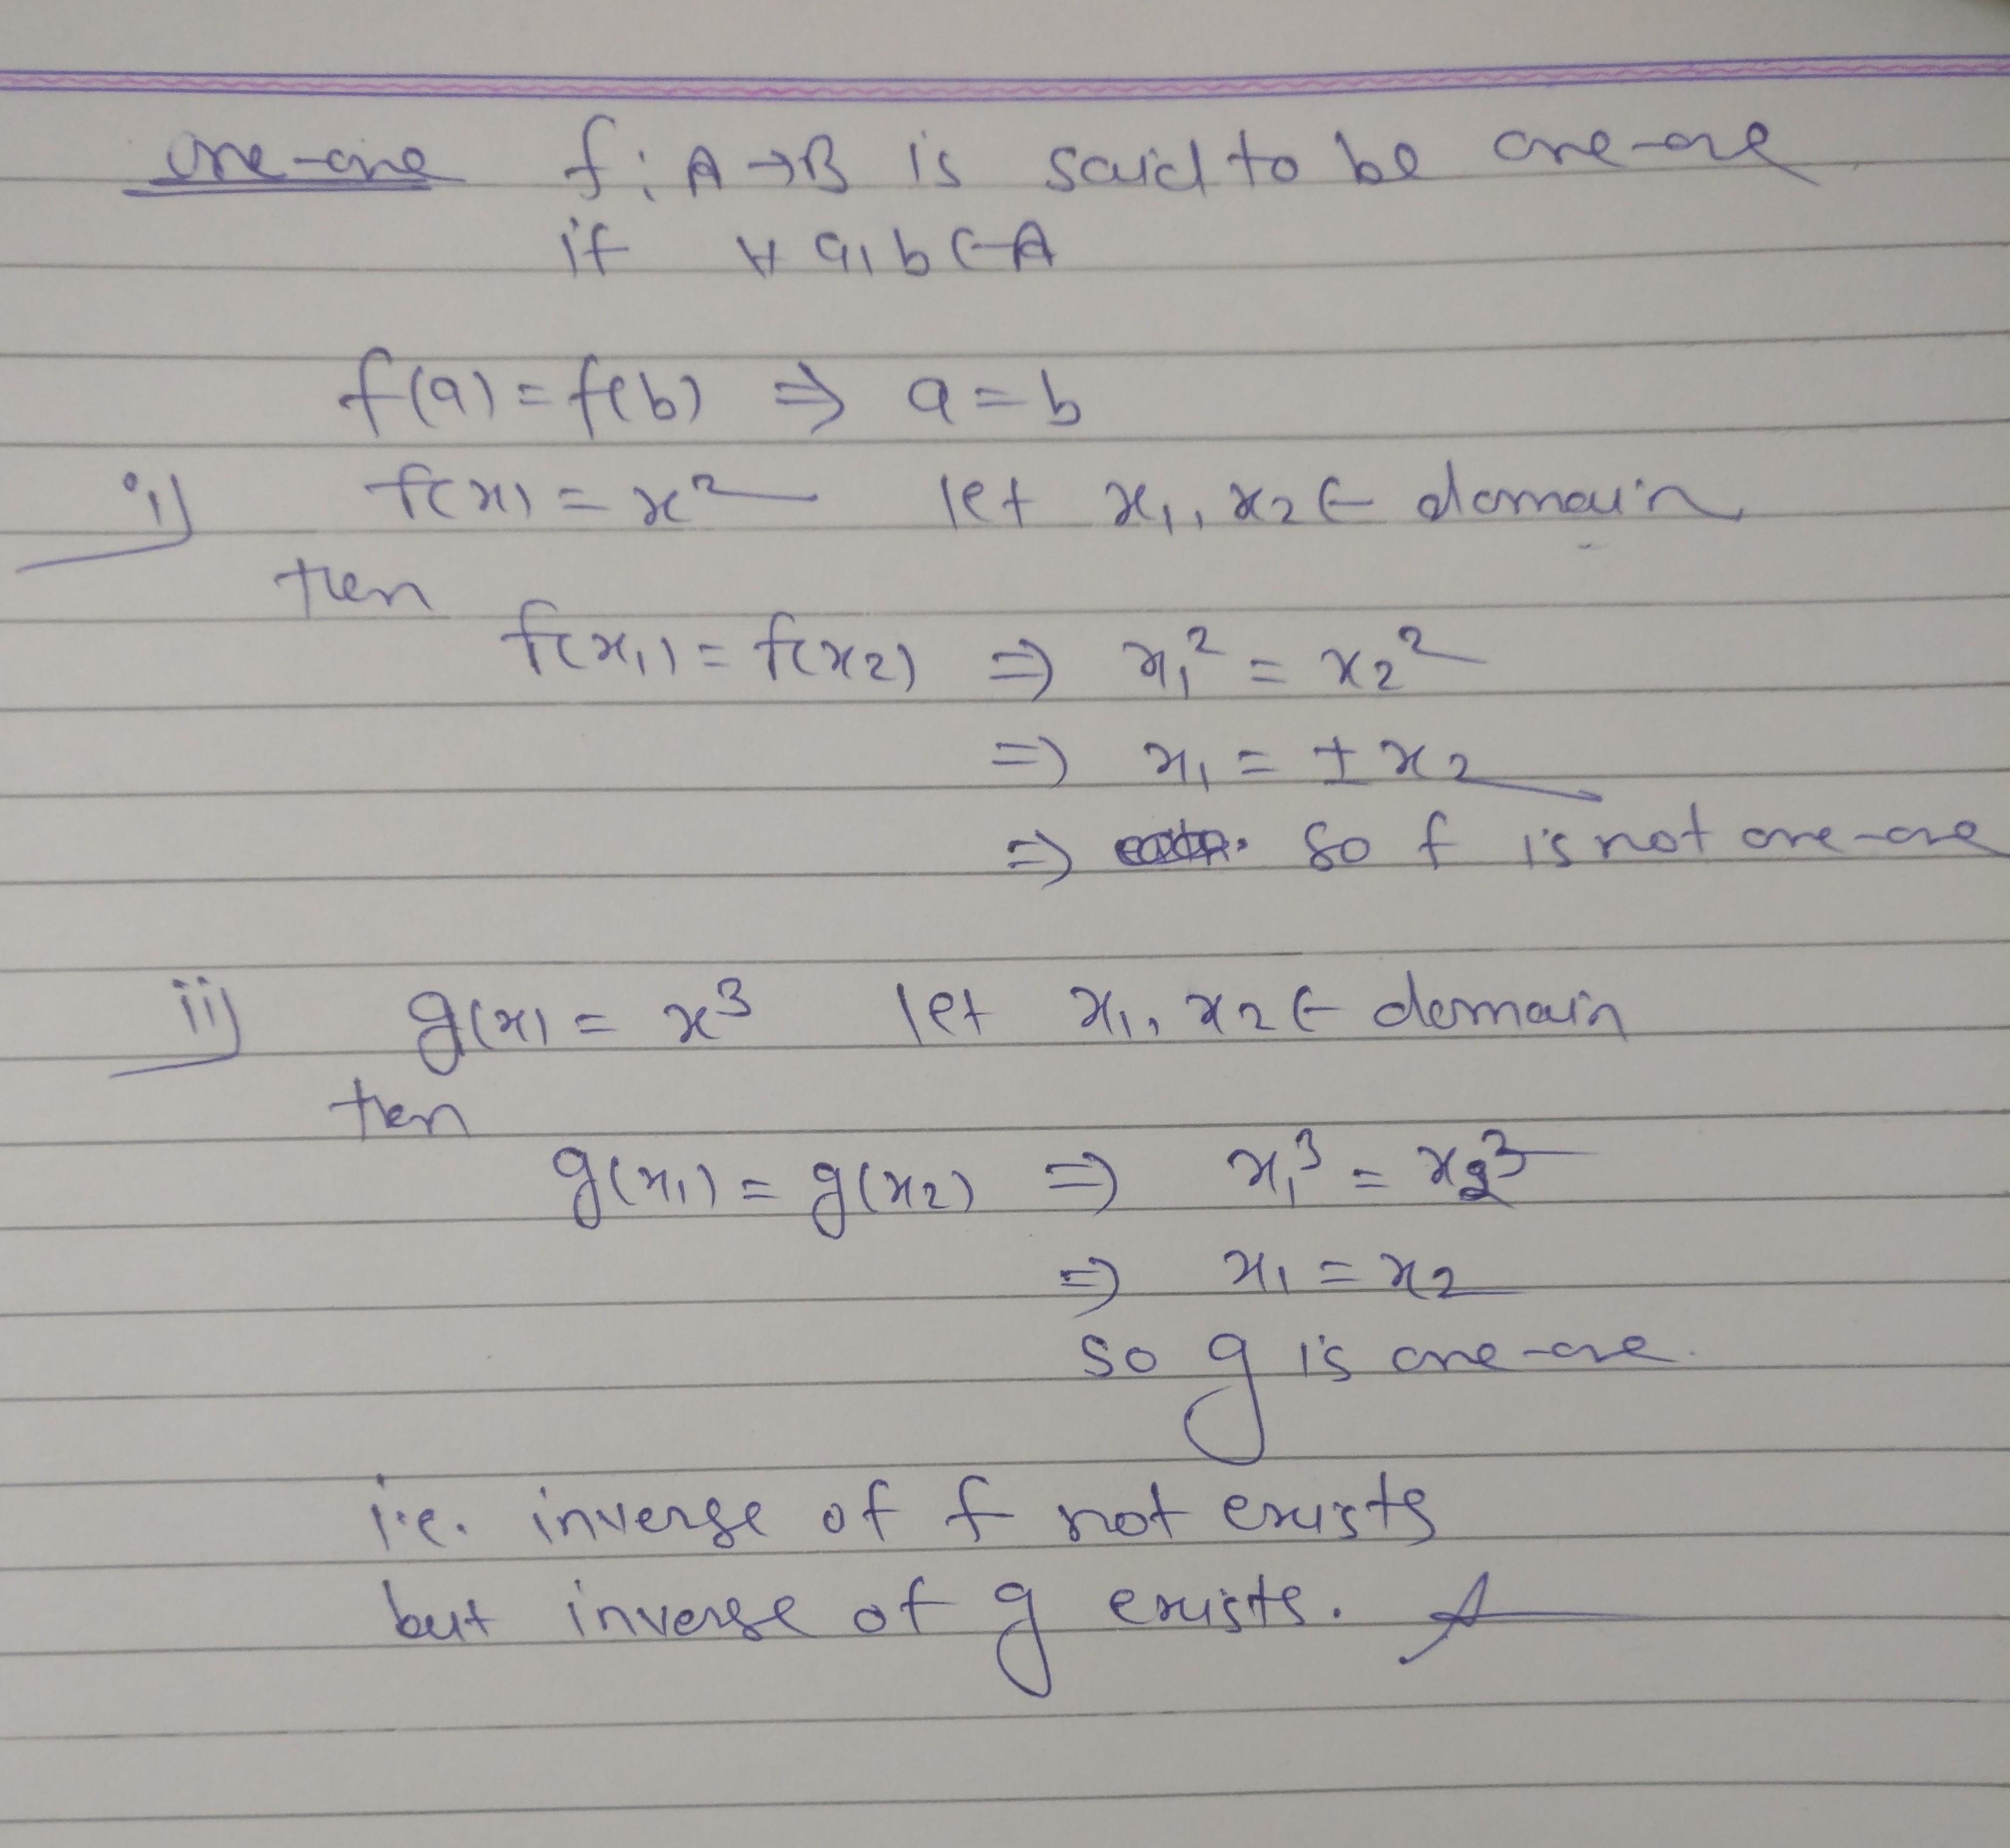 one-one f: A→B is said to be one-one
if ∀ a, b ∈ A
f(a) = f(b) ⇒ a = b
i) f(x) = x² let x₁, x₂ ∈ domain
then
f(x₁) = f(x₂) ⇒ x₁² = x₂²
⇒ x₁ = ± x₂
⇒ So f is not one-one
ii) g(x) = x³ let x₁, x₂ ∈ domain
then
g(x₁) = g(x₂) ⇒ x₁³ = x₂³
⇒ x₁ = x₂
so g is one-one.
i.e. inverse of f not exists
but inverse of g exists.